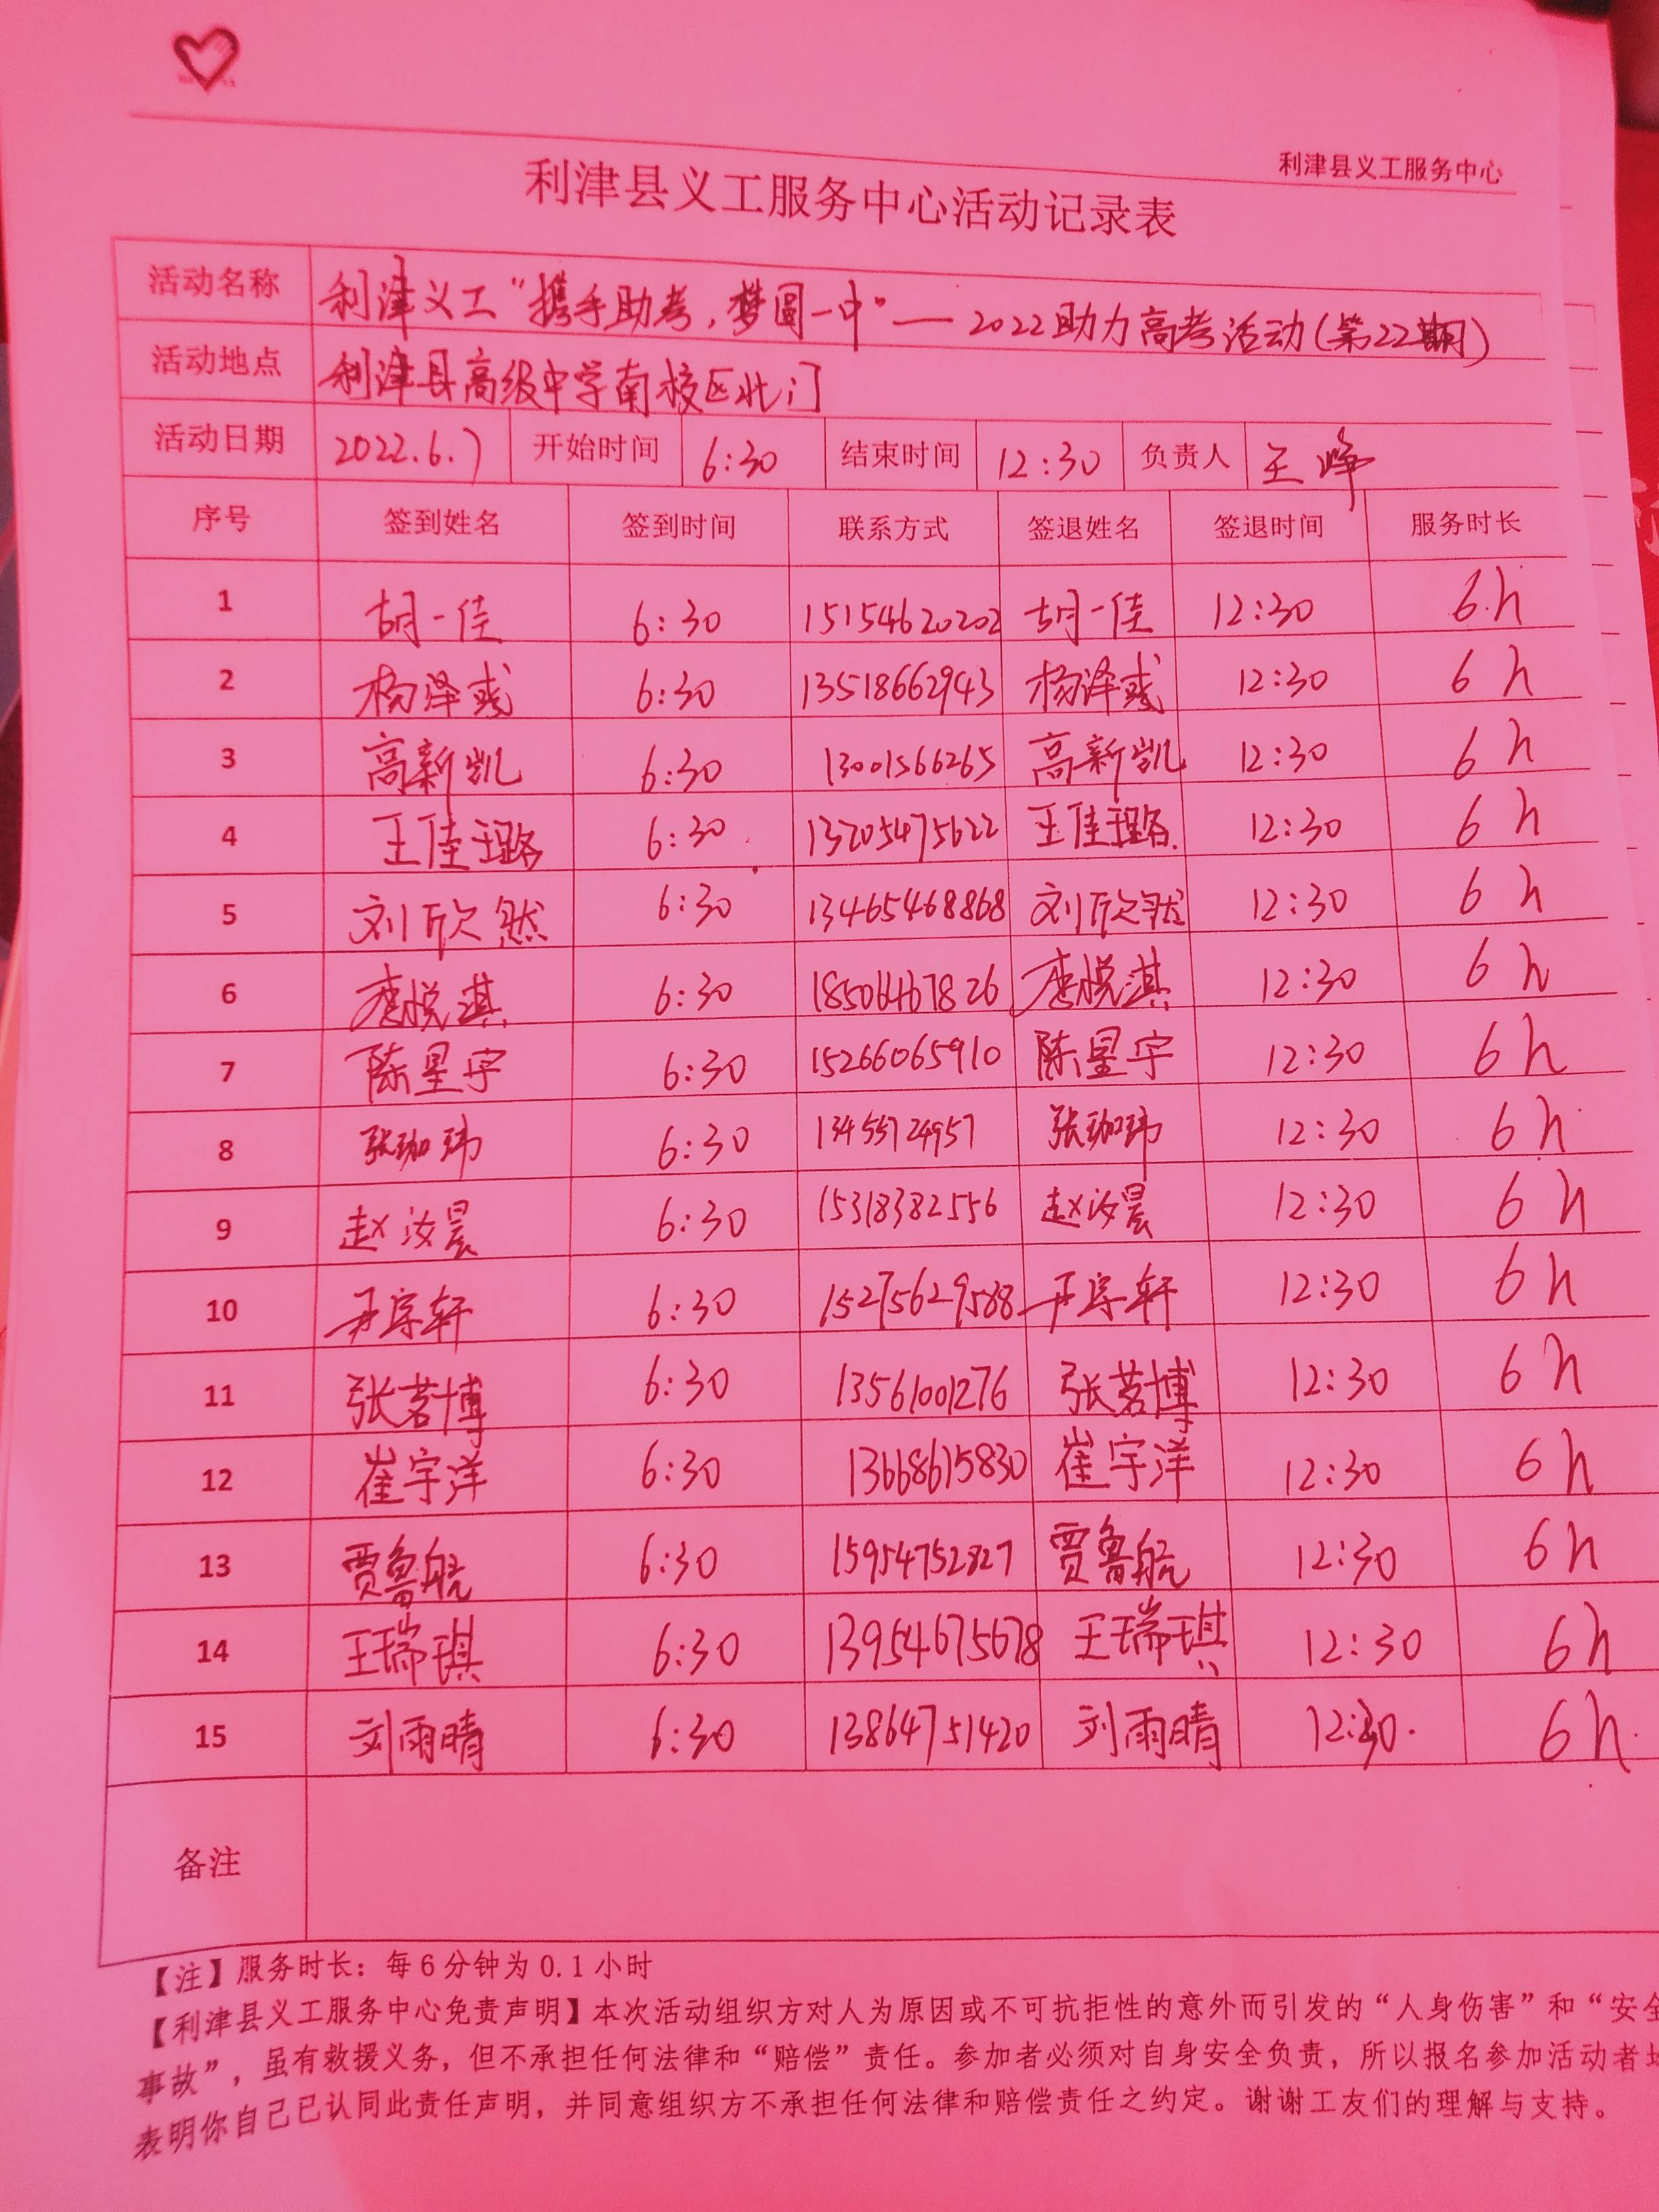 利津县义工服务中心
利津县义工服务中心活动记录表
活动名称 利津义工“携手助考，梦圆一中”— 2022助力高考活动(第22期)
活动地点 利津县高级中学南校区北门
活动日期 2022.6.7 开始时间 6:30 结束时间 12:30 负责人 王峰
序号 签到姓名 签到时间 联系方式 签退姓名 签退时间 服务时长
1 胡一佳 6:30 15154620202 胡一佳 12:30 6.h
2 杨泽彧 6:30 13518662943 杨泽彧 12:30 6h
3 高新凯 6:30 13001566265 高新凯 12:30 6h
4 王佳璐 6:30 13705475622 王佳璐 12:30 6h
5 刘欣然 6:30 13465468868 刘欣然 12:30 6h
6 悦淇 6:30 18506467826 悦淇 12:30 6h
7 陈星宇 6:30 15266065910 陈星宇 12:30 6h
8 张珈玮 6:30 13455724957 张珈玮 12:30 6h
9 赵汝晨 6:30 15318382556 赵汝晨 12:30 6h
10 轩 6:30 15275629588 轩 12:30 6h
11 张茗博 6:30 13561001276 张茗博 12:30 6h
12 崔宇洋 6:30 13668615830 崔宇洋 12:30 6h
13 贾鲁航 6:30 15954752827 贾鲁航 12:30 6h
14 王瑞琪 6:30 13954675678 王瑞琪 12:30 6h
15 刘雨晴 6:30 13864751420 刘雨晴 12:30. 6h.
备注
【注】服务时长：每6分钟为0.1小时
【利津县义工服务中心免责声明】本次活动组织方对人为原因或不可抗拒性的意外而引发的“人身伤害”和“安全
事故”，虽有救援义务，但不承担任何法律和“赔偿”责任。参加者必须对自身安全负责，所以报名参加活动者
表明你自己已认同此责任声明，并同意组织方不承担任何法律和赔偿责任之约定。谢谢工友们的理解与支持。